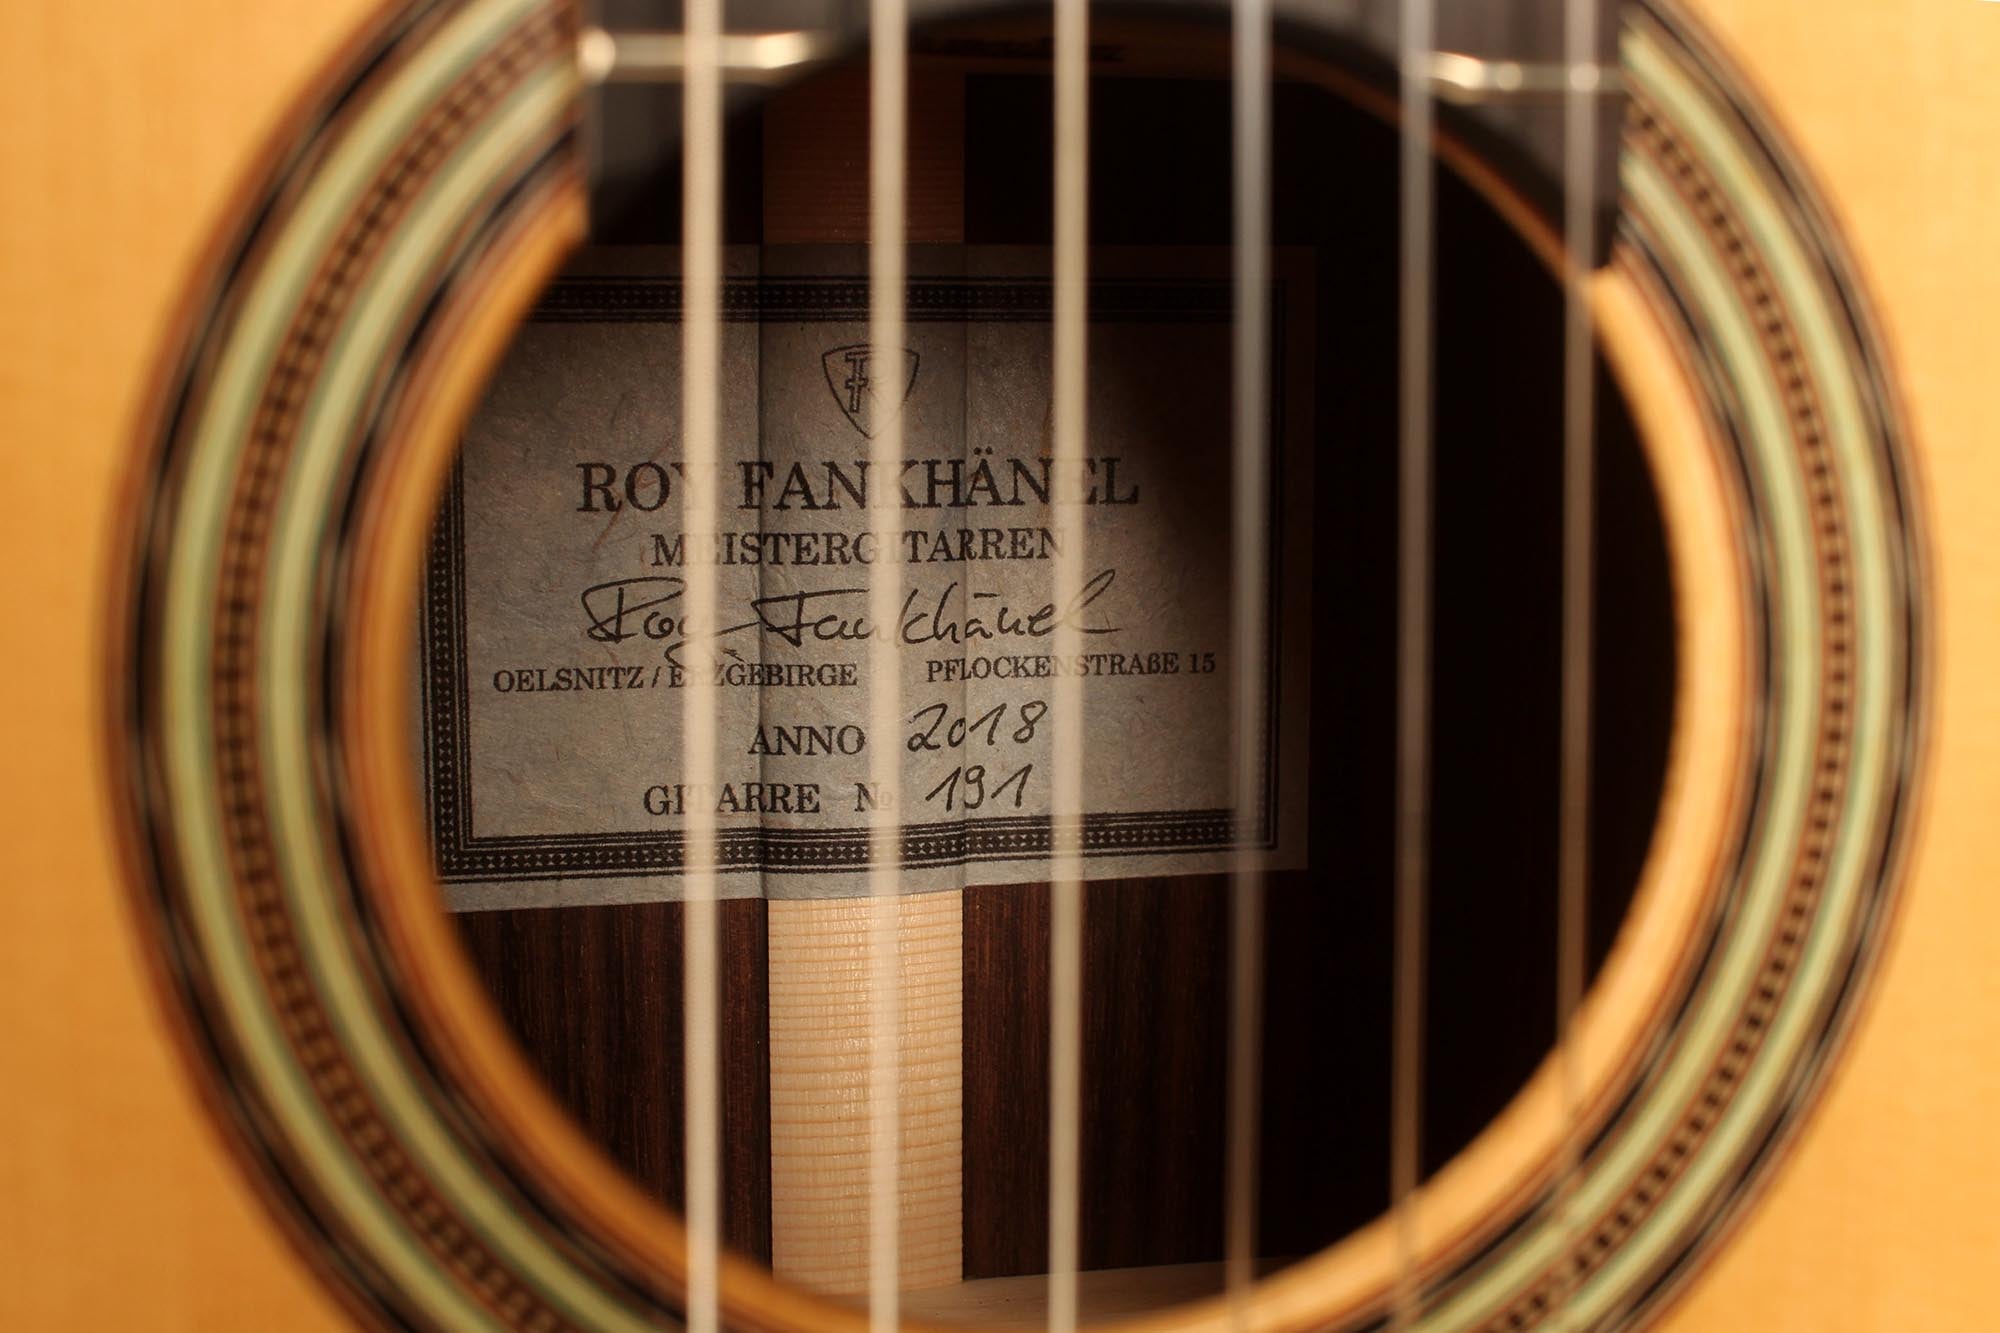 FR
ROY FANKHÄNEL
MEISTERGITARREN
Roy Fankhänel
OELSNITZ / ERZGEBIRGE PFLOCKENSTRAßE 15
ANNO 2018
GITARRE No 191